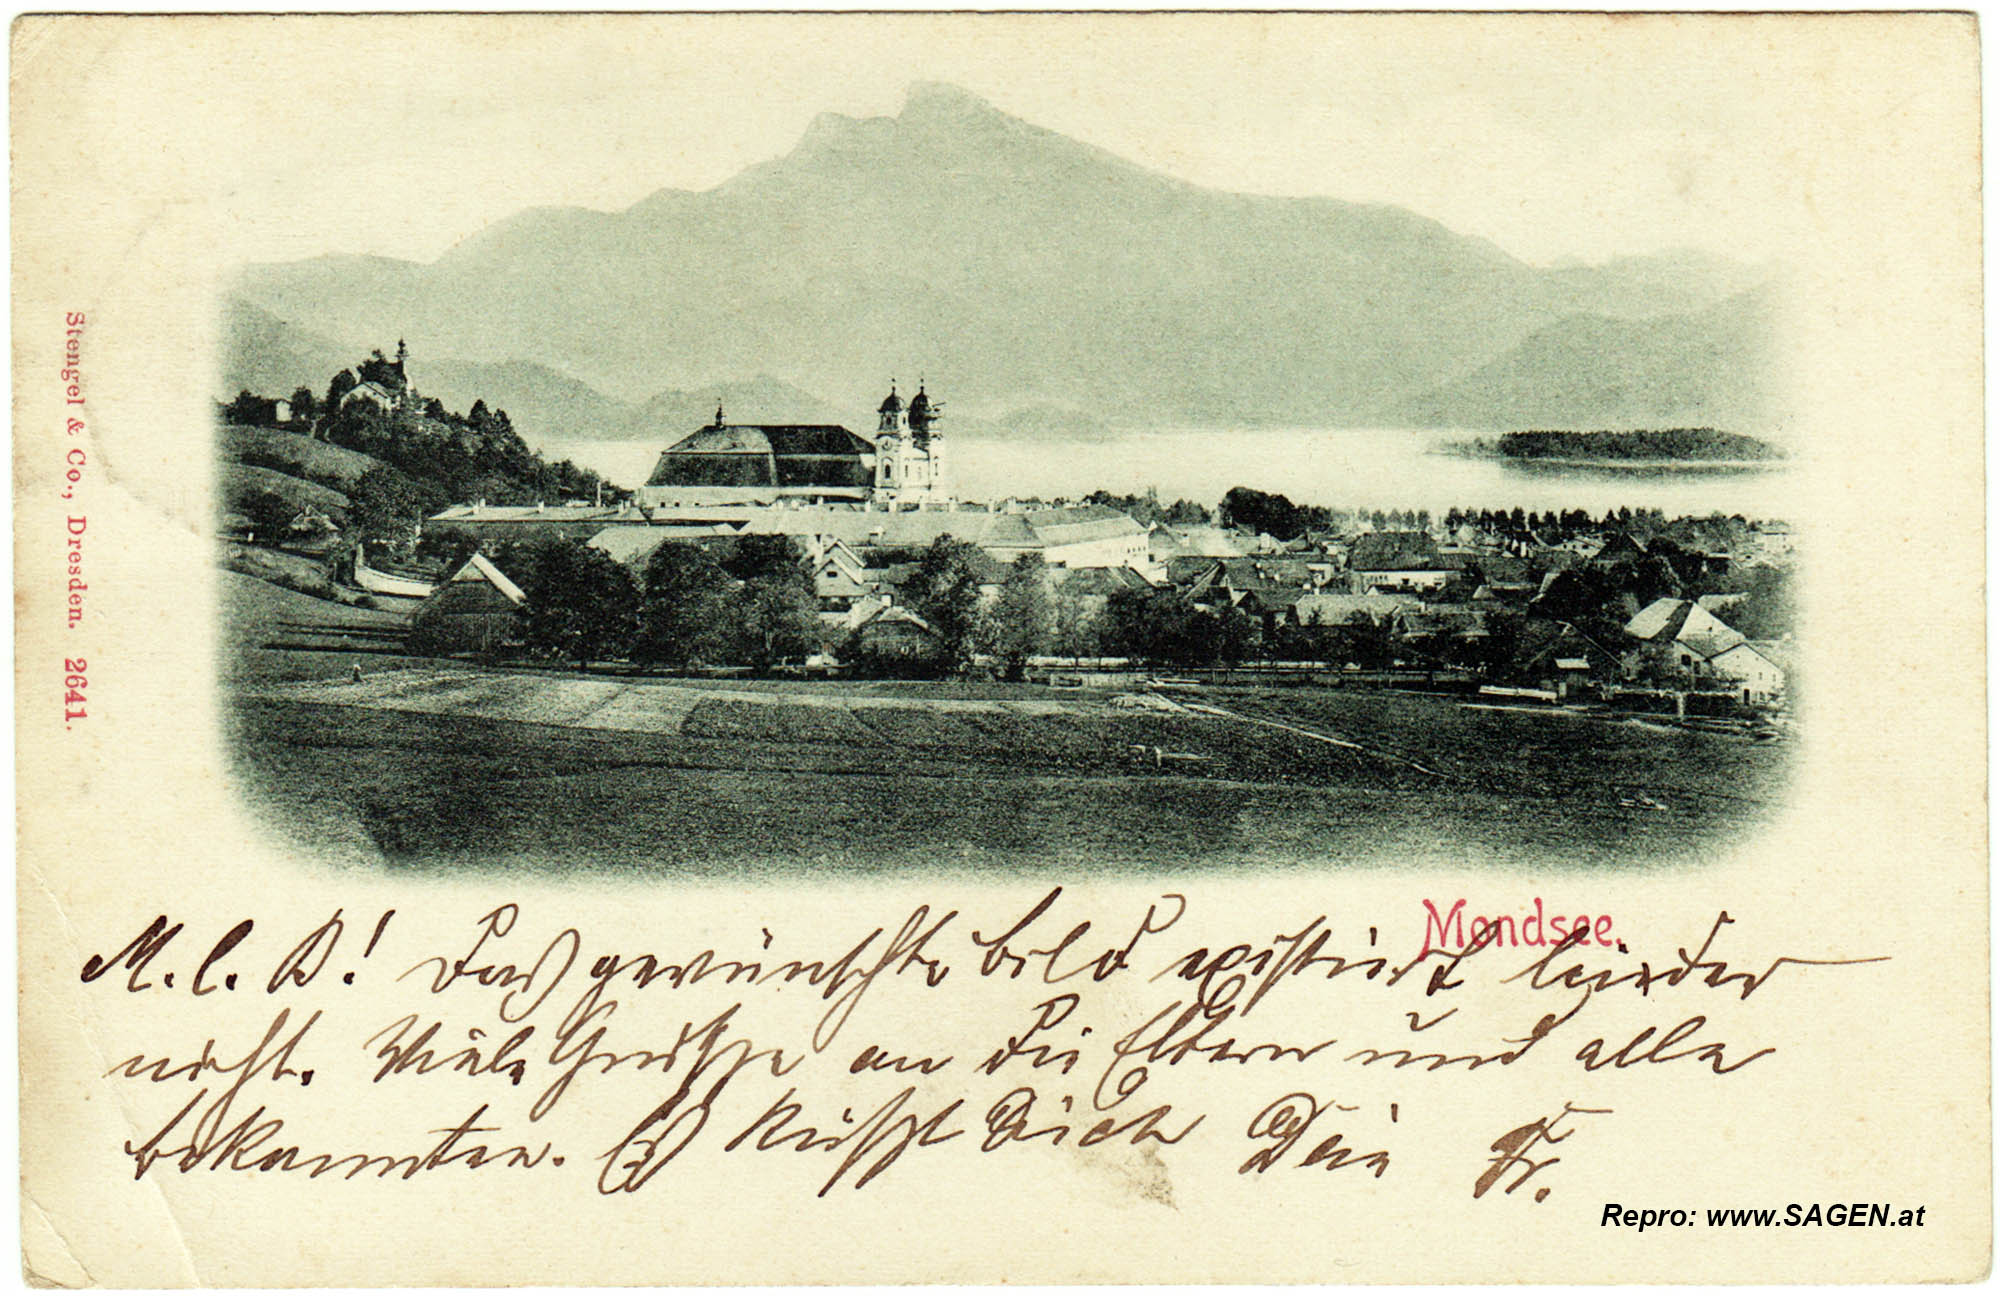 Stengel & Co., Dresden. 2641.
Mondsee.
M. l. K! Das gewünschte Bild existiert leider
nicht. Viele Grüsse an die Eltern und alle
Bekannten. Es küßt Dich Dein Fr.
Repro: www.SAGEN.at